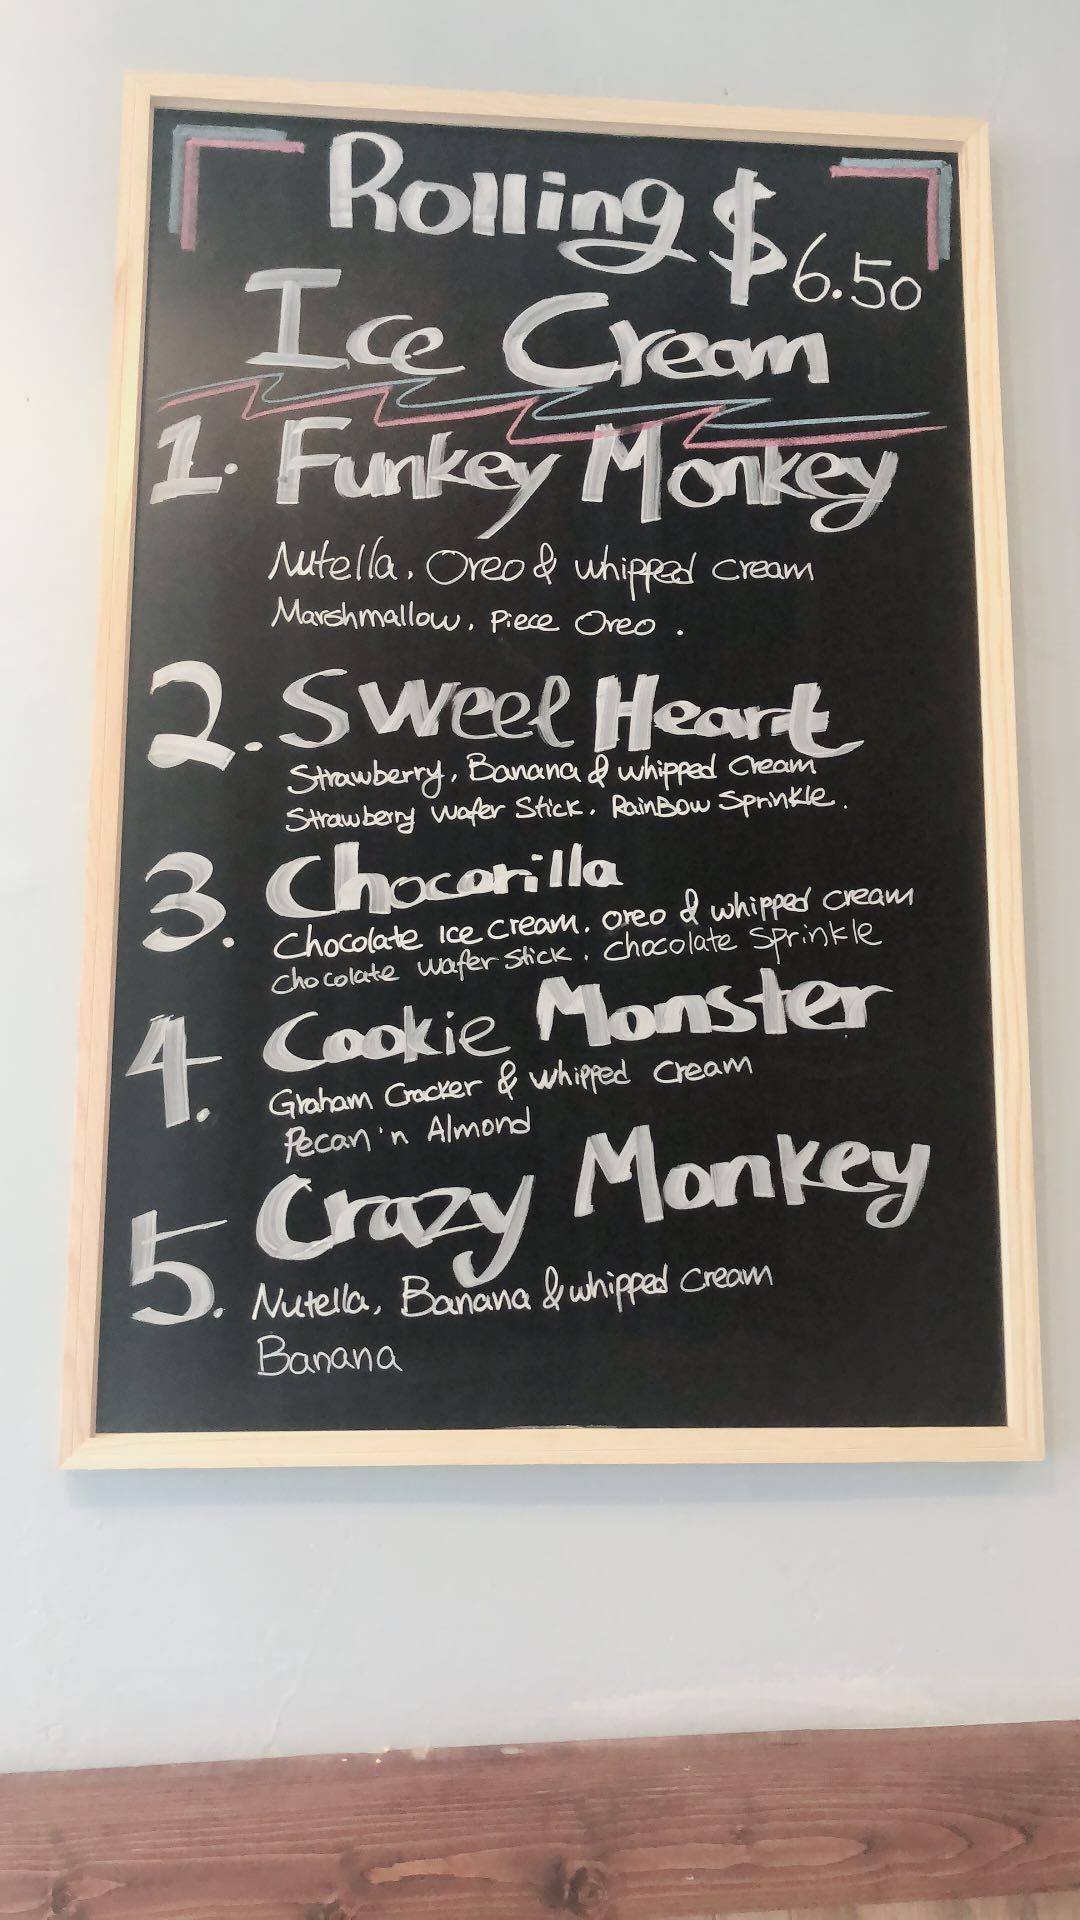 Rolling $6.50
Ice Cream
1. Funkey Monkey
Nutella, Oreo & whipped cream
Marshmallow, Piece Oreo.
2. Sweet Heart
Strawberry, Banana & whipped Cream
Strawberry wafer Stick, RainBow Sprinkle.
3. Chocorilla
Chocolate Ice cream, oreo & whipped cream
chocolate wafer stick, chocolate sprinkle
4. Cookie Monster
Graham Cracker & whipped cream
Pecan 'n Almond
5. Crazy Monkey
Nutella, Banana & whipped cream
Banana